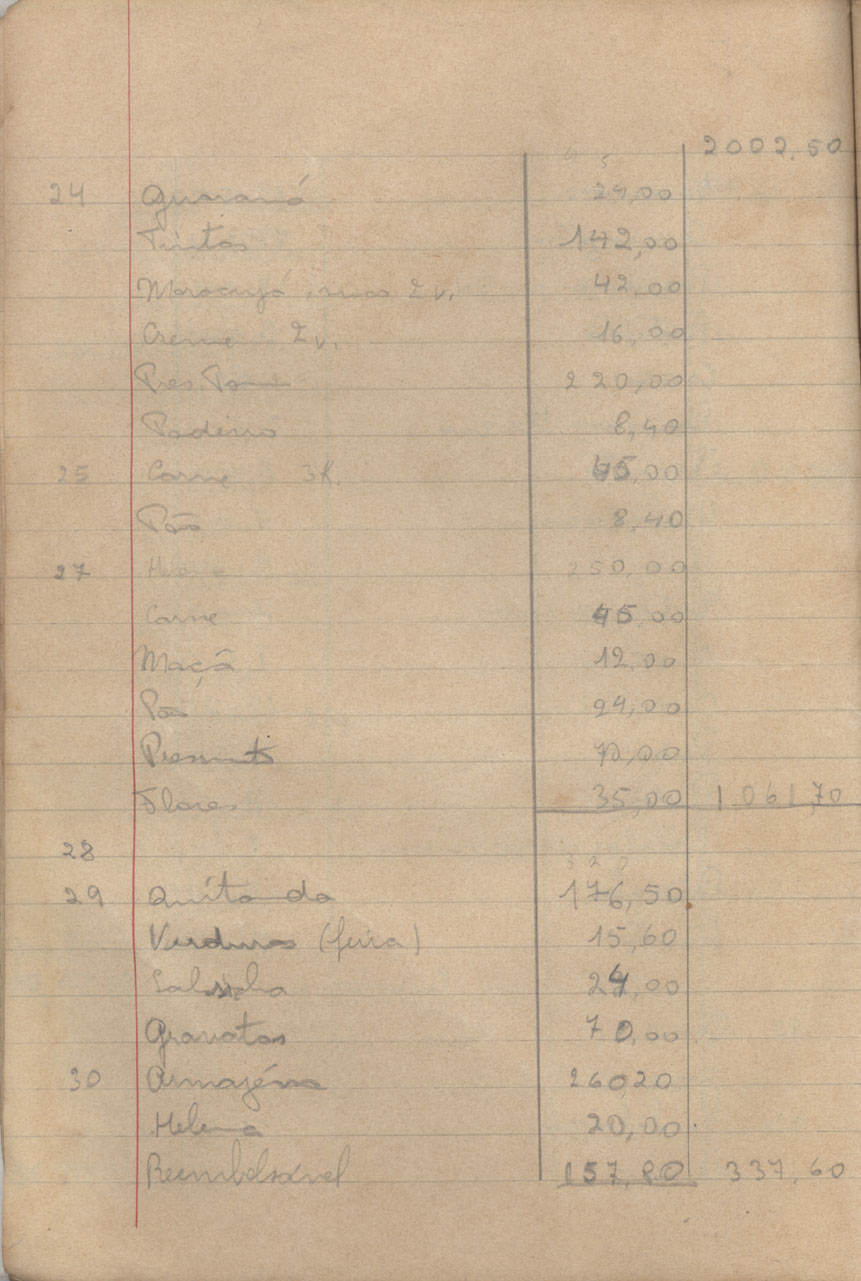 2002,50
24 Guaraná 24,00
Tintas 142,00
Maracujá suco 2 v. 42,00
Creme 2 v. 16,00
Pres. 220,00
Padeiro 8,40
25 Carne 3k 45,00
Pão 8,40
27 Helena 250,00
Carne 45,00
Maçã 12,00
Pão 24,00
Presunto 70,00
Flores 35,00 1061,70
28
29 Quitanda 176,50
Verduras (feira) 15,60
Salsicha 24,00
Gravatas 70,00
30 Armazém 26020
Helena 20,00
Reembolsável 157,80 337,60